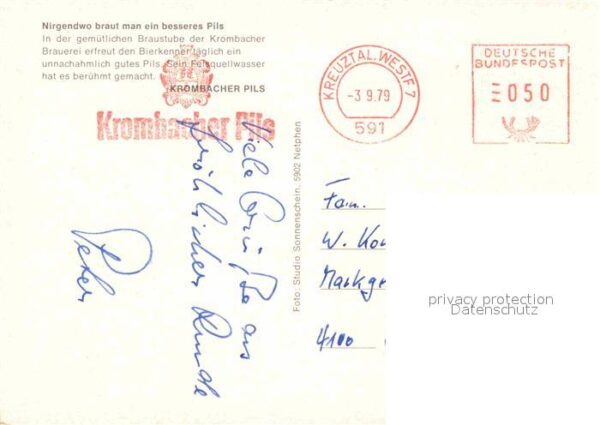 Nirgendwo braut man ein besseres Pils
In der gemütlichen Braustube der Krombacher
Brauerei erfreut den Bierkenner täglich ein
unnachahmlich gutes Pils. Sein Felsquellwasser
hat es berühmt gemacht.
KROMBACHER PILS
Krombacher Pils
KREUZTAL, WESTF 7
-3.9.79
591
DEUTSCHE
BUNDESPOST
050
Viele Grüße aus
fröhlicher Runde
Peter
Foto: Studio Sonnenschein, 5902 Netphen
Fam.
W. Kou
Markgr
4100
privacy protection
Datenschutz